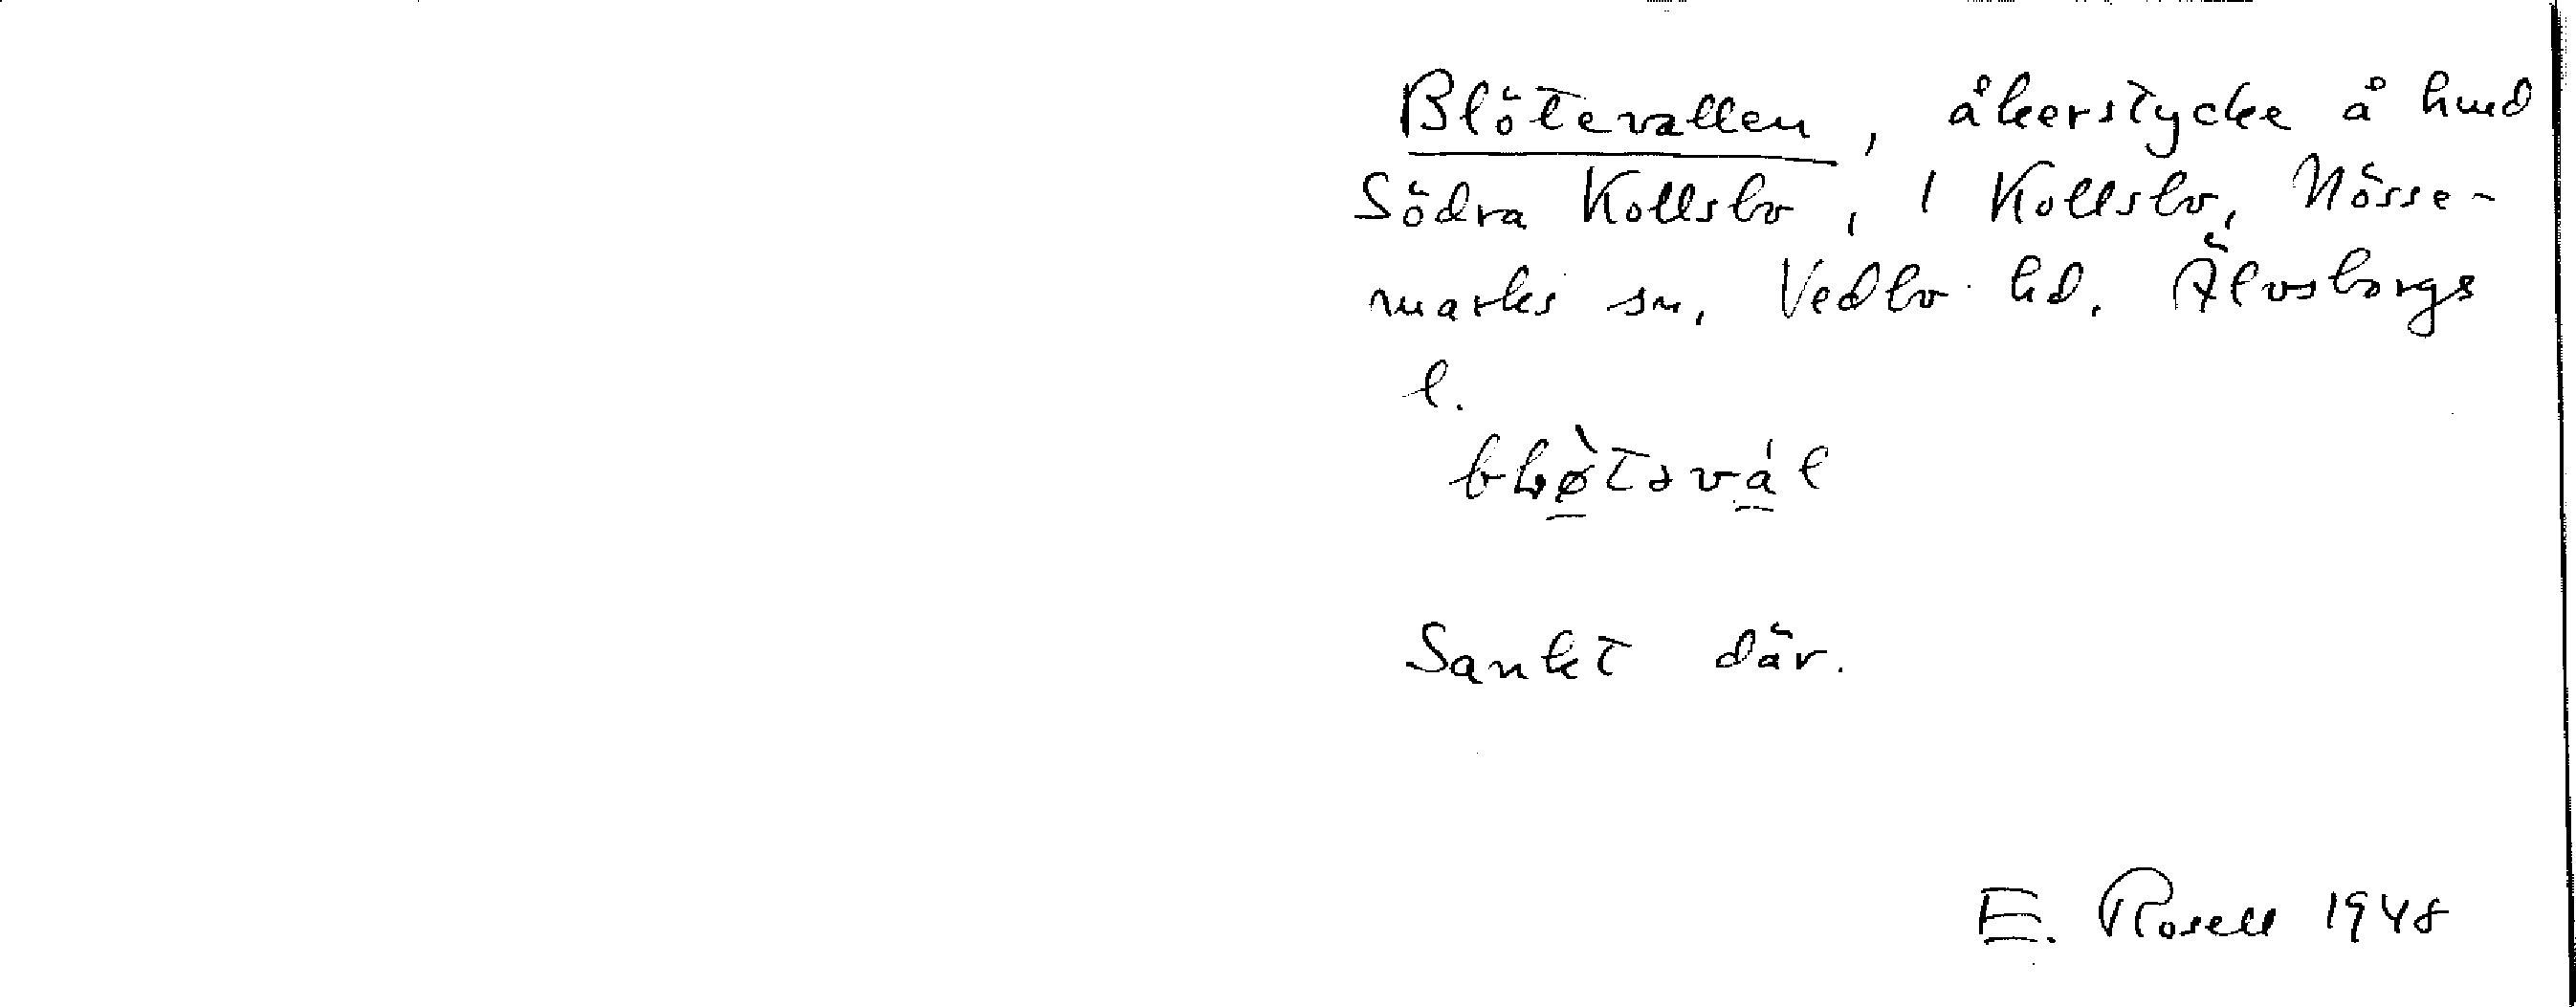 Blötevallen, åkerstycke å hmd
Södra Kollsbo, 1 Kollsbo, Nösse-
marks sn, Vedbo hd. Älvsborgs
l.
Sankt där.
E. Rosell 1948